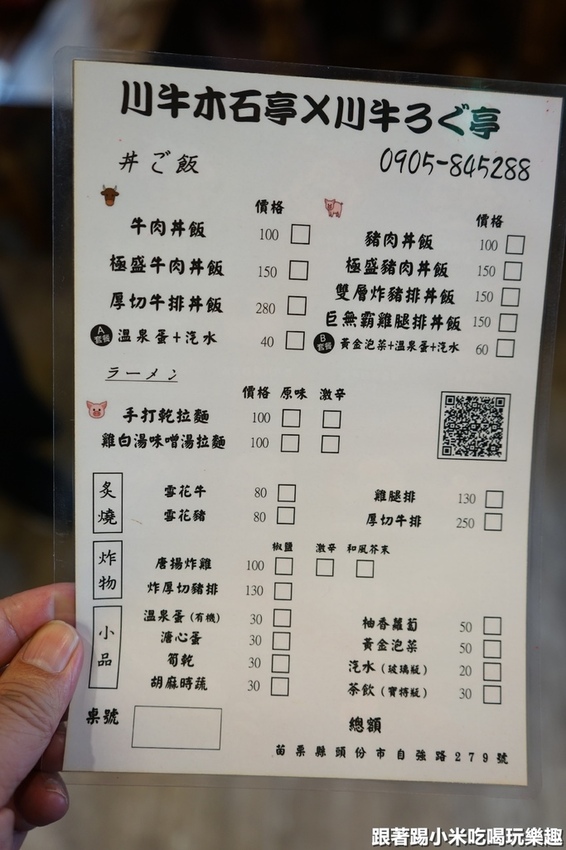 川牛木石亭X川牛ろぐ亭
丼ご飯 0905-845288
價格
牛肉丼飯 100
極盛牛肉丼飯 150
厚切牛排丼飯 280
A套餐 溫泉蛋+汽水 40
價格
豬肉丼飯 100
極盛豬肉丼飯 150
雙層炸豬排丼飯 150
巨無霸雞腿排丼飯 150
B套餐 黃金泡菜+溫泉蛋+汽水 60
ラーメン
價格 原味 激辛
手打乾拉麵 100
雞白湯味噌湯拉麵 100
炙燒
雪花牛 80
雪花豬 80
雞腿排 130
厚切牛排 250
炸物
椒鹽 激辛 和風芥末
唐揚炸雞 100
炸厚切豬排 130
小品
溫泉蛋(有機) 30
溏心蛋 30
筍乾 30
胡麻時蔬 30
柚香蘿蔔 50
黃金泡菜 50
汽水(玻璃瓶) 20
茶飲(寶特瓶) 30
桌號
總額
苗栗縣頭份市自強路279號
跟著踢小米吃喝玩樂趣